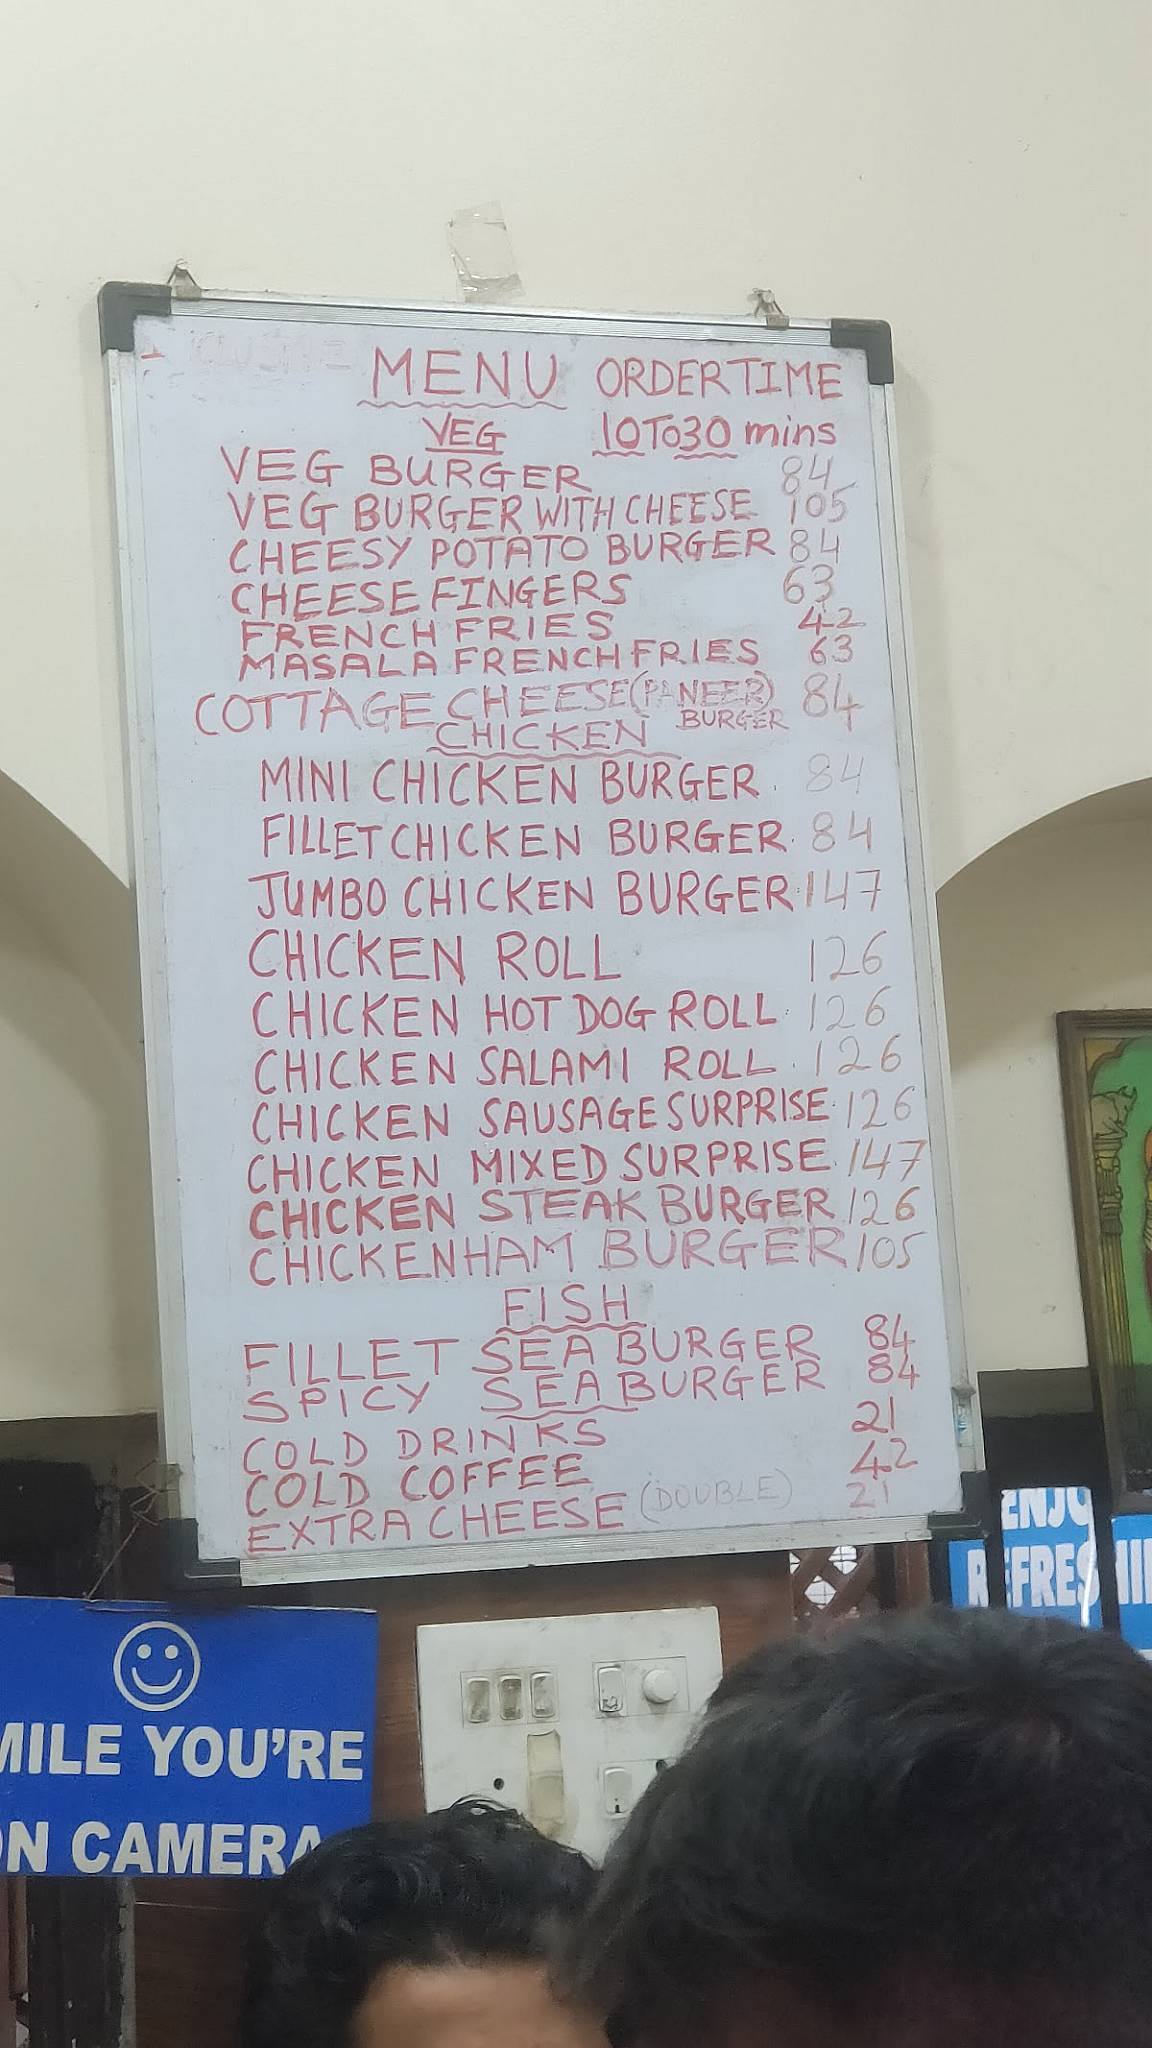 MENU ORDERTIME
VEG 10TO30 mins
VEG BURGER 84
VEG BURGER WITH CHEESE 105
CHEESY POTATO BURGER 84
CHEESE FINGERS 63
FRENCH FRIES 42
MASALA FRENCH FRIES 63
COTTAGE CHEESE (PANEER) BURGER 84
CHICKEN
MINI CHICKEN BURGER. 84
FILLET CHICKEN BURGER. 84
JUMBO CHICKEN BURGER. 147
CHICKEN ROLL 126
CHICKEN HOT DOG ROLL. 126
CHICKEN SALAMI ROLL. 126
CHICKEN SAUSAGE SURPRISE. 126
CHICKEN MIXED SURPRISE. 147
CHICKEN STEAK BURGER 126
CHICKEN HAM BURGER 105
FISH
FILLET SEA BURGER 84
SPICY SEA BURGER 84
COLD DRINKS 21
COLD COFFEE 42
EXTRA CHEESE (DOUBLE) 21
MILE YOU'RE
ON CAMERA
ENJO
REFRES